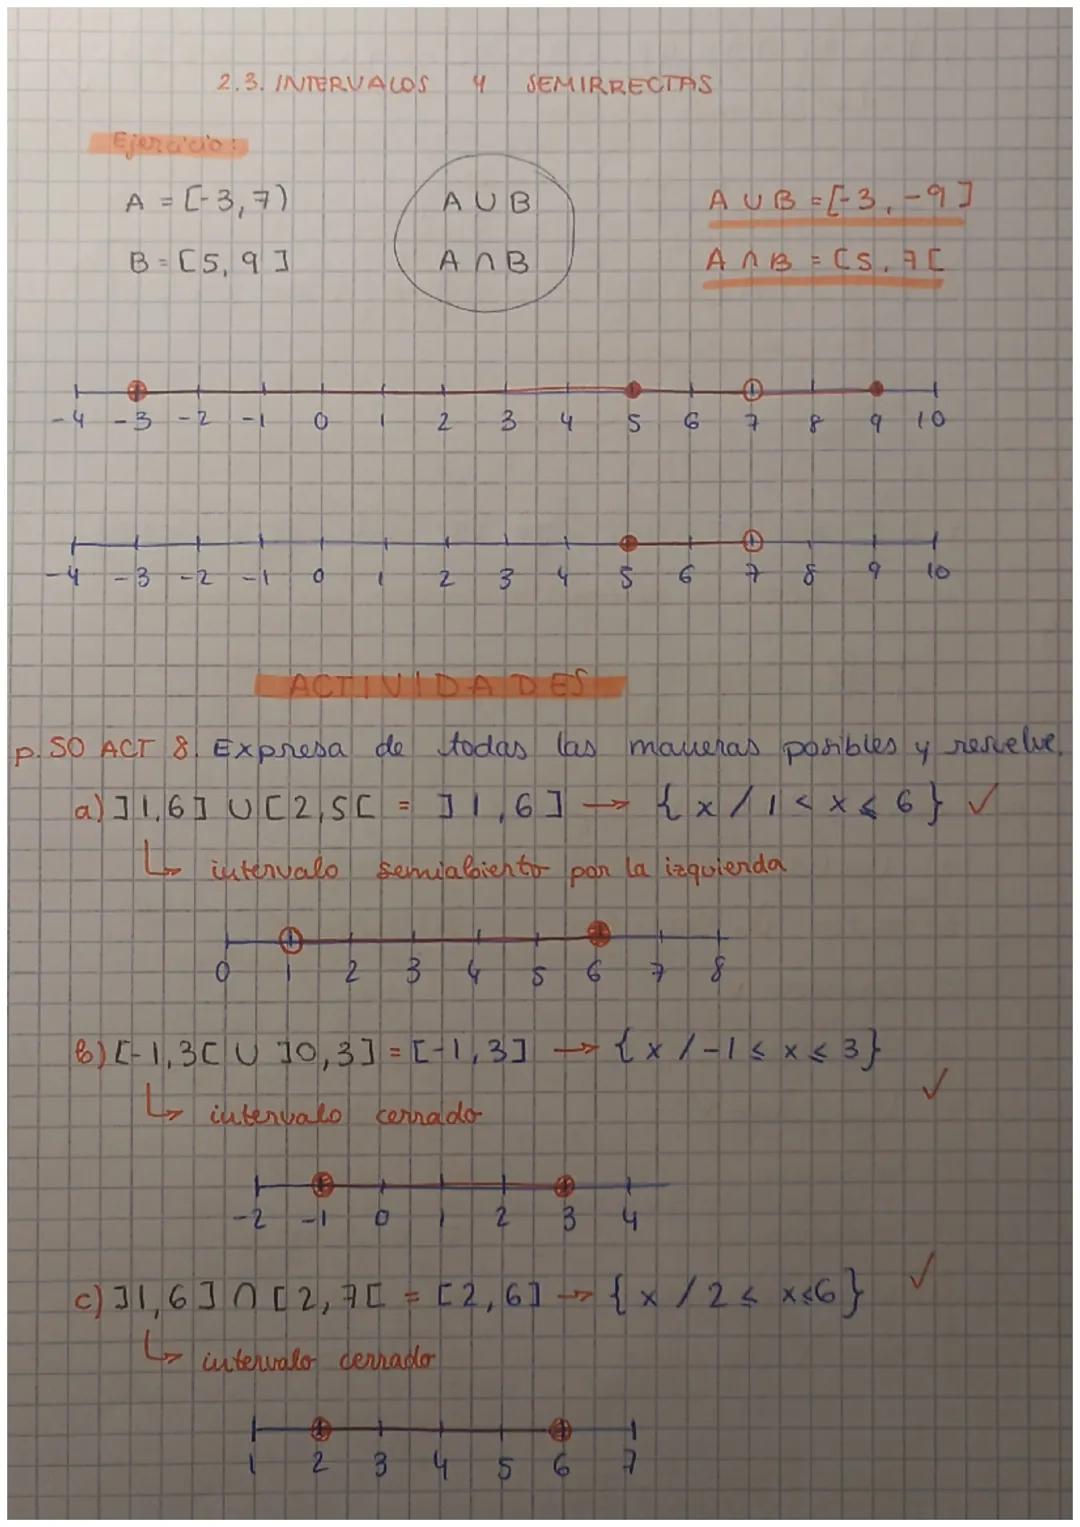 2.3. INTERVALOS Y SEMIRRECTAS
Ejercicio:
A = [-3,7) A ∪ B A ∪ B = [-3,-9]
B = [5,9] A ∩ B A ∩ B = [5,7[
-4 -3 -2 -1 0 1 2 3 4 5 6 7 8 9 10
-4 -3 -2 -1 0 1 2 3 4 5 6 7 8 9 10
ACTIVIDADES
p.50 ACT 8. Expresa de todas las maneras posibles y resuelve.
a) ]1,6] ∪ [2,5[ = ]1,6] → {x / 1 < x ≤ 6} ✓
↳ intervalo semiabierto por la izquierda
0 1 2 3 4 5 6 7 8
b) [-1,3[ ∪ ]0,3] = [-1,3] → {x / -1 ≤ x ≤ 3} ✓
↳ intervalo cerrado
-2 -1 0 1 2 3 4
c) ]1,6] ∩ [2,7[ = [2,6] → {x / 2 ≤ x ≤ 6} ✓
↳ intervalo cerrado
1 2 3 4 5 6 7